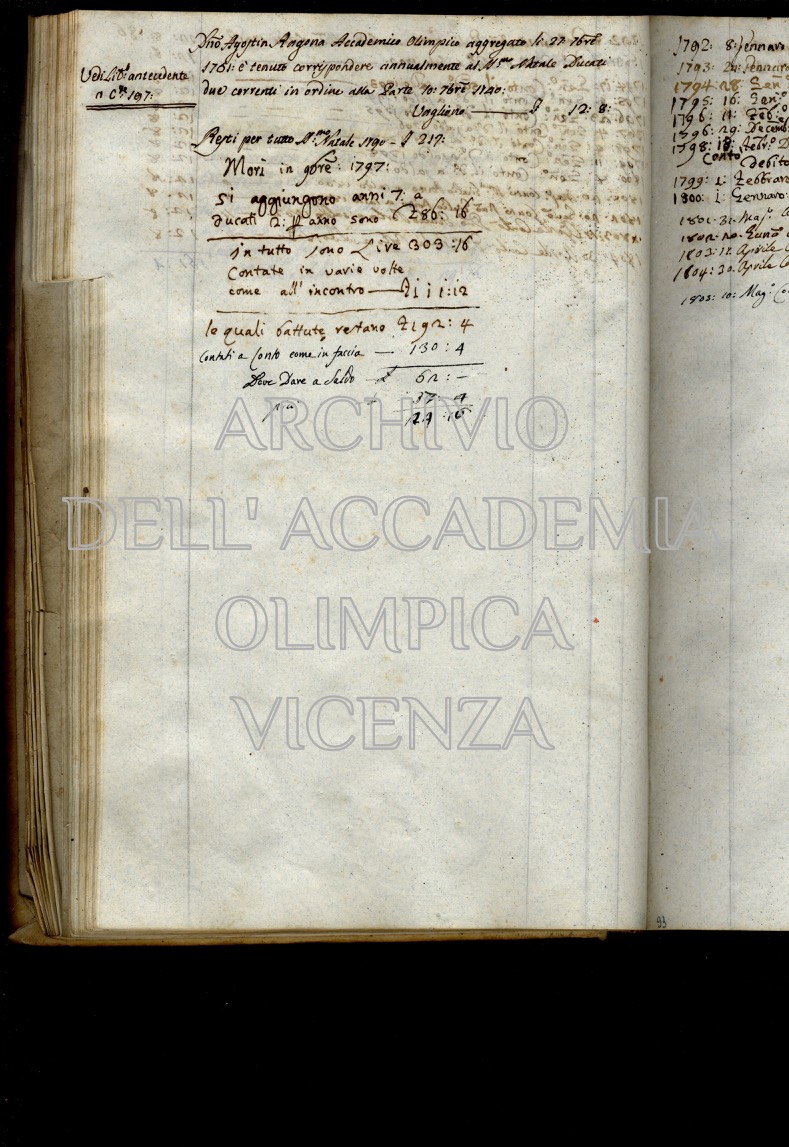 Agostin Angona Accademico Olimpico aggregato li 27: 7bre
1761: è tenuto corrispondere annualmente al SS.mo Natale Ducati
due correnti in ordine alla Parte 10: 7bre 1740:
Vagliono 12: 8:
Vedi Lib.o antecedente
a C.te 197:
Resti per tutto SS.mo Natale 1790 - £ 217:
Morì in 9bre: 1797:
si aggiungono anni 7: a
ducati 2: P anno sono £86: 16
in tutto sono Live 303:16
Contate in varie volte
come all' incontro £111:12
le quali battute restano £192: 4
Contati a Conto come in faccia 130: 4
Deve Dare a Saldo £ 62: -
più 37: 4
24: 16
1792: 8: Gennaro
1793: 24: Gennaro
1794: 28: Gen.o
1795: 16: Gen.o
1796: 11:
1796: 29: Decemb
1798: 18: Febr.o
Conto Debito
1799: 1: Febbraro
1800: 1: Gennaro:
1801: 31: Mag.o
1802: 20:
1803: 12: Aprile
1804: 30: Aprile
1805: 10: Mag.o
93
ARCHIVIO
DELL' ACCADEMIA
OLIMPICA
VICENZA